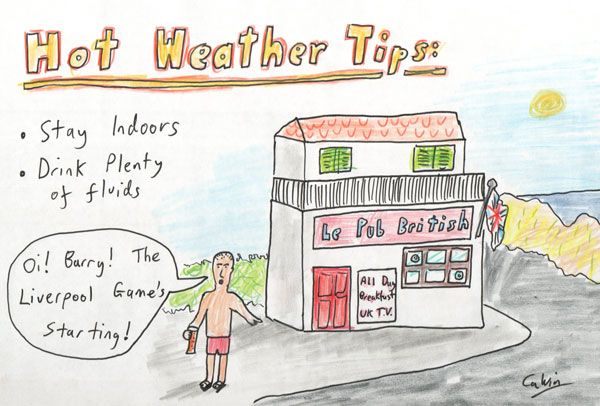 Hot Weather Tips:
• Stay Indoors
• Drink Plenty
of fluids
Oi! Barry! The
Liverpool Game's
Starting!
Le Pub British
All Day
Breakfast
UK T.V.
Calvin